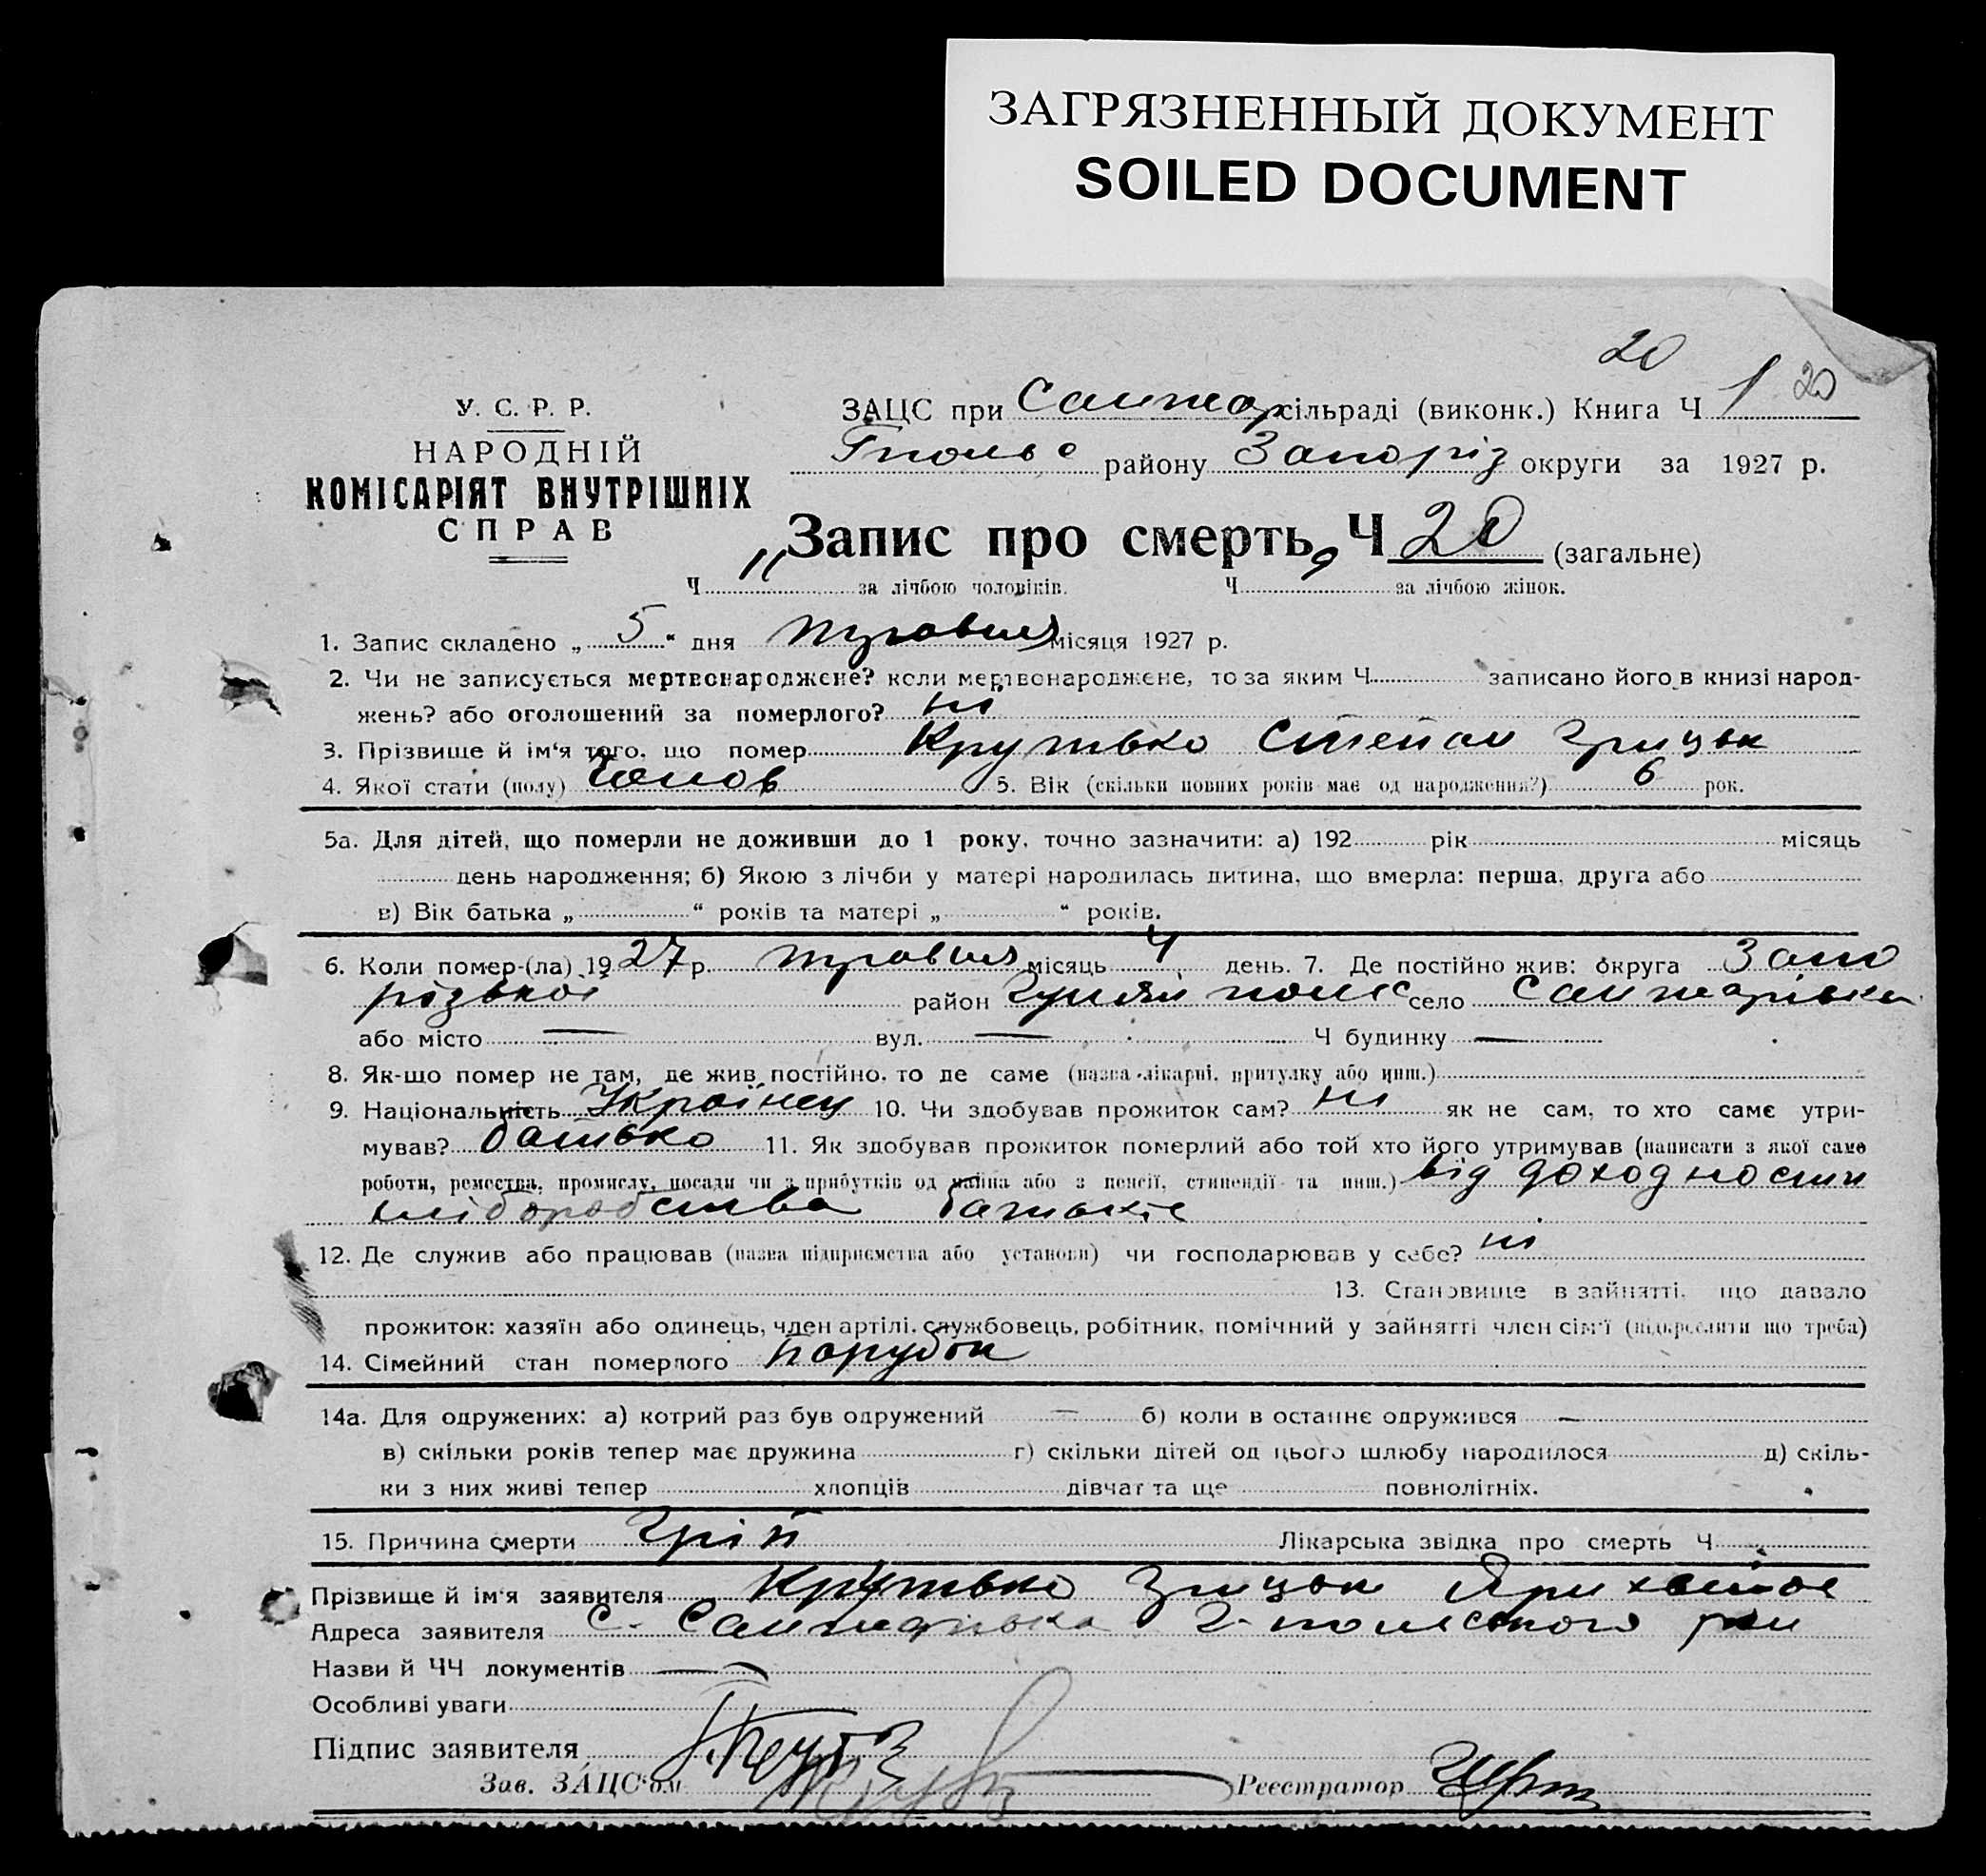 ЗАГРЯЗНЕННЫЙ ДОКУМЕНТ
SOILED DOCUMENT
20
У. С. Р. Р.
НАРОДНІЙ
КОМІСАРІЯТ ВНУТРІШНІХ
СПРАВ
ЗАЦС при Санжар сільраді (виконк.) Книга Ч 1 20
району Запоріз округи за 1927 р.
Запис про смерть Ч 20 (загальне)
Ч 11 за лічбою чоловіків. Ч 9 за лічбою жінок.
1. Запис складено „ 5 “ дня травня місяця 1927 р.
2. Чи не записується мертвонароджене? коли мертвонароджене, то за яким Ч записано його в книзі народ-
жень? або оголошений за померлого? ні
3. Прізвище й ім‘я того, що помер Крутько Степан Грицьк
4. Якої стати (полу) Чолов 5. Вік (скільки повних років має од народження?) 6 рок.
5а. Для дітей, що померли не доживши до 1 року, точно зазначити: а) 192 рік місяць
день народження; б) Якою з лічби у матері народилась дитина, що вмерла: перша, друга або
в) Вік батька „ “ років та матері „ “ років.
6. Коли помер-(ла) 1927 р. травня місяць 4 день. 7. Де постійно жив: округа Запо
різької район Гуляй поле село Санжарівка
або місто — вул. — Ч будинку —
8. Як-що помер не там, де жив постійно, то де саме (назва лікарні, притулку або инш.)
9. Національність Українец 10. Чи здобував прожиток сам? ні як не сам, то хто саме утри-
мував? батько 11. Як здобував прожиток померлий або той хто його утримував (написати з якої саме
роботи, ремества, промислу, посади чи з прибутків од майна або з пенсії, стипендії та инш.) від доходности
хліборобства
12. Де служив або працював (назва підприємства або установи) чи господарював у себе? ні
13. Становище в зайнятті, що давало
прожиток: хазяїн або одинець, член артілі, службовець, робітник, помічний у зайнятті член сім‘ї (підкреслити що треба)
14. Сімейний стан померлого парубок
14а. Для одружених: а) котрий раз був одружений — б) коли в останнє одружився —
в) скільки років тепер має дружина г) скільки дітей од цього шлюбу народилося д) скіль-
ки з них живі тепер хлопців дівчат та ще повнолітніх.
15. Причина смерти Гріп Лікарська звідка про смерть Ч
Прізвище й ім‘я заявителя Крутько Грицьк
Адреса заявителя С. Санжарівка Г-польського рай
Назви й ЧЧ документів —
Особливі уваги
Підпис заявителя
Зав. ЗАЦС‘ом Реєстратор